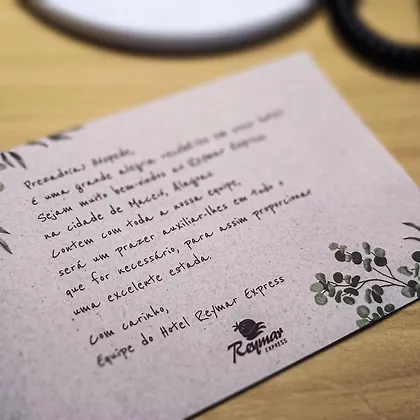 Prezado(a) Hóspede,
É uma grande alegria recebê-lo em nosso hotel
Sejam muito bem-vindos ao Reymar Express
na cidade de Maceió, Alagoas.
Contem com toda a nossa equipe,
será um prazer auxiliar-lhes em tudo o
que for necessário, para assim proporcionar
uma excelente estada.
Com carinho,
Equipe do Hotel Reymar Express
Reymar
EXPRESS